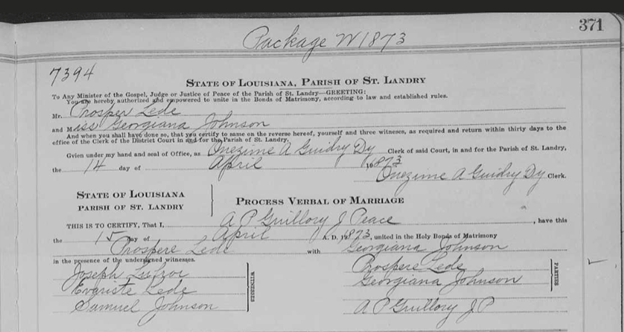 371
Package No 1873
7394
STATE OF LOUISIANA, PARISH OF ST. LANDRY
To Any Minister of the Gospel, Judge or Justice of Peace of the Parish of St. Landry—GREETING:
You are hereby authorized and empowered to unite in the Bonds of Matrimony, according to law and established rules.
Mr. Prosper Lede
and Miss Georgiana Johnson
And when you shall have done so, that you certify to same on the reverse hereof, yourself and three witnesses, as required and return within thirty days to the
office of the Clerk of the District Court in and for the Parish of St. Landry.
Given under my hand and seal of Office, as Onezime A Guidry Dy Clerk of said Court, in and for the Parish of St. Landry,
the 14 day of April 1873
Onezime A Guidry Dy Clerk.
STATE OF LOUISIANA
PARISH OF ST. LANDRY
PROCESS VERBAL OF MARRIAGE
THIS IS TO CERTIFY, That I, A P Guillory J Peace, have this
the 15 day of April A. D. 1873, united in the Holy Bonds of Matrimony
Prospere Lede with Georgiana Johnson
in the presence of the undersigned witnesses.
Joseph
Evariste Lede
Samuel Johnson
WITNESSES
Prospere Lede
Georgiana Johnson
PARTIES
A P Guillory J P